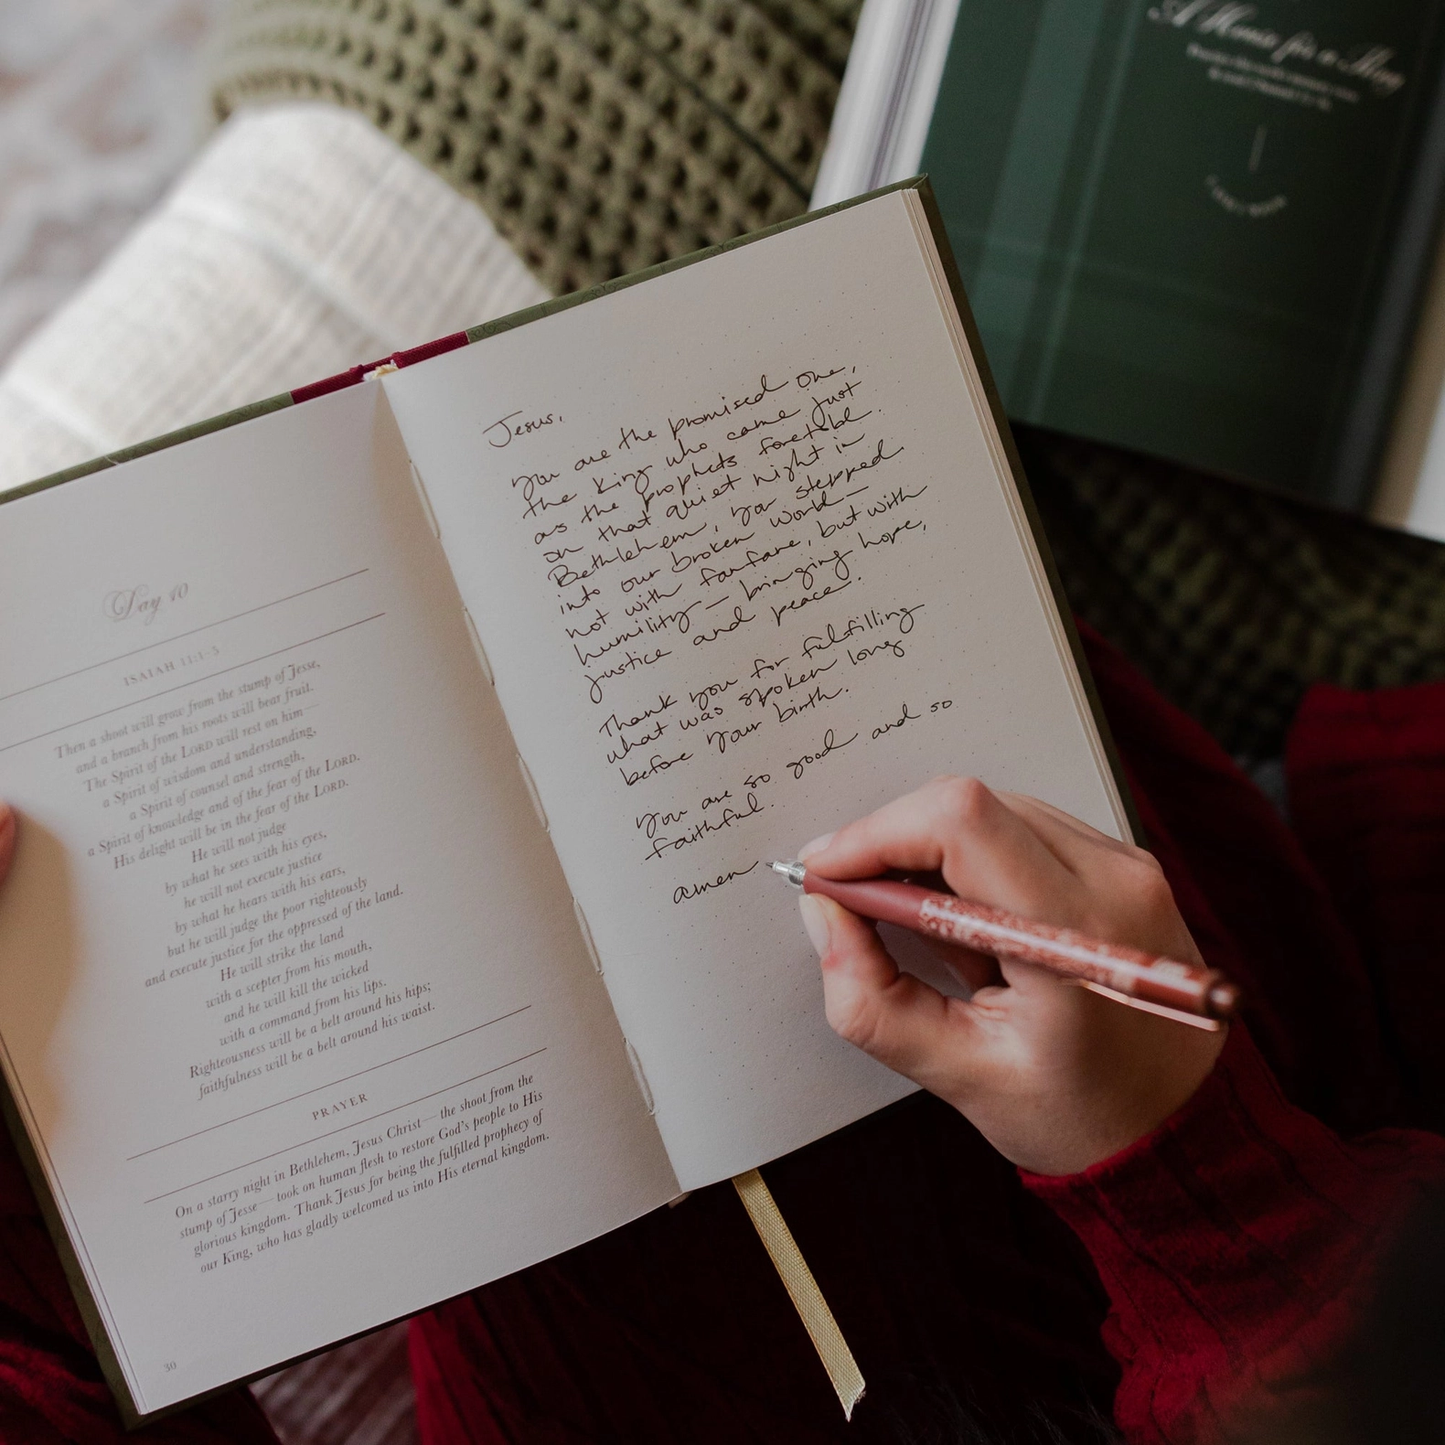 Day 40
ISAIAH 11:1-5
Then a shoot will grow from the stump of Jesse,
and a branch from his roots will bear fruit.
The Spirit of the LORD will rest on him—
a Spirit of wisdom and understanding,
a Spirit of counsel and strength,
a Spirit of knowledge and of the fear of the LORD.
His delight will be in the fear of the LORD.
He will not judge
by what he sees with his eyes,
he will not execute justice
by what he hears with his ears,
but he will judge the poor righteously
and execute justice for the oppressed of the land.
He will strike the land
with a scepter from his mouth,
and he will kill the wicked
with a command from his lips.
Righteousness will be a belt around his hips;
faithfulness will be a belt around his waist.
PRAYER
On a starry night in Bethlehem, Jesus Christ—the shoot from the
stump of Jesse—took on human flesh to restore God's people to His
glorious kingdom. Thank Jesus for being the fulfilled prophecy of
our King, who has gladly welcomed us into His eternal kingdom.
30
Jesus,
You are the promised one,
the King who came just
as the prophets foretold.
on that quiet night in
Bethlehem, You stepped
into our broken world—
not with fanfare, but with
humility— bringing hope,
justice and peace.
Thank You for fulfilling
what was spoken long
before Your birth.
You are so good and so
faithful.
amen
A for a